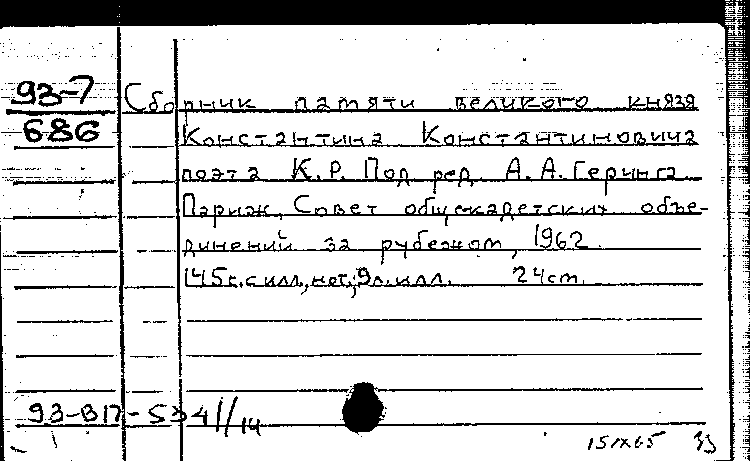 93-7
686
Сборник памяти великого князя
Константина Константиновича
поэта К.Р. Под ред. А.А. Геринга
Париж, Совет общекадетских объе-
динений за рубежом, 1962
145с. с илл., нот., 9л. илл. 24cm.
93-В17-534//14
15/IX65